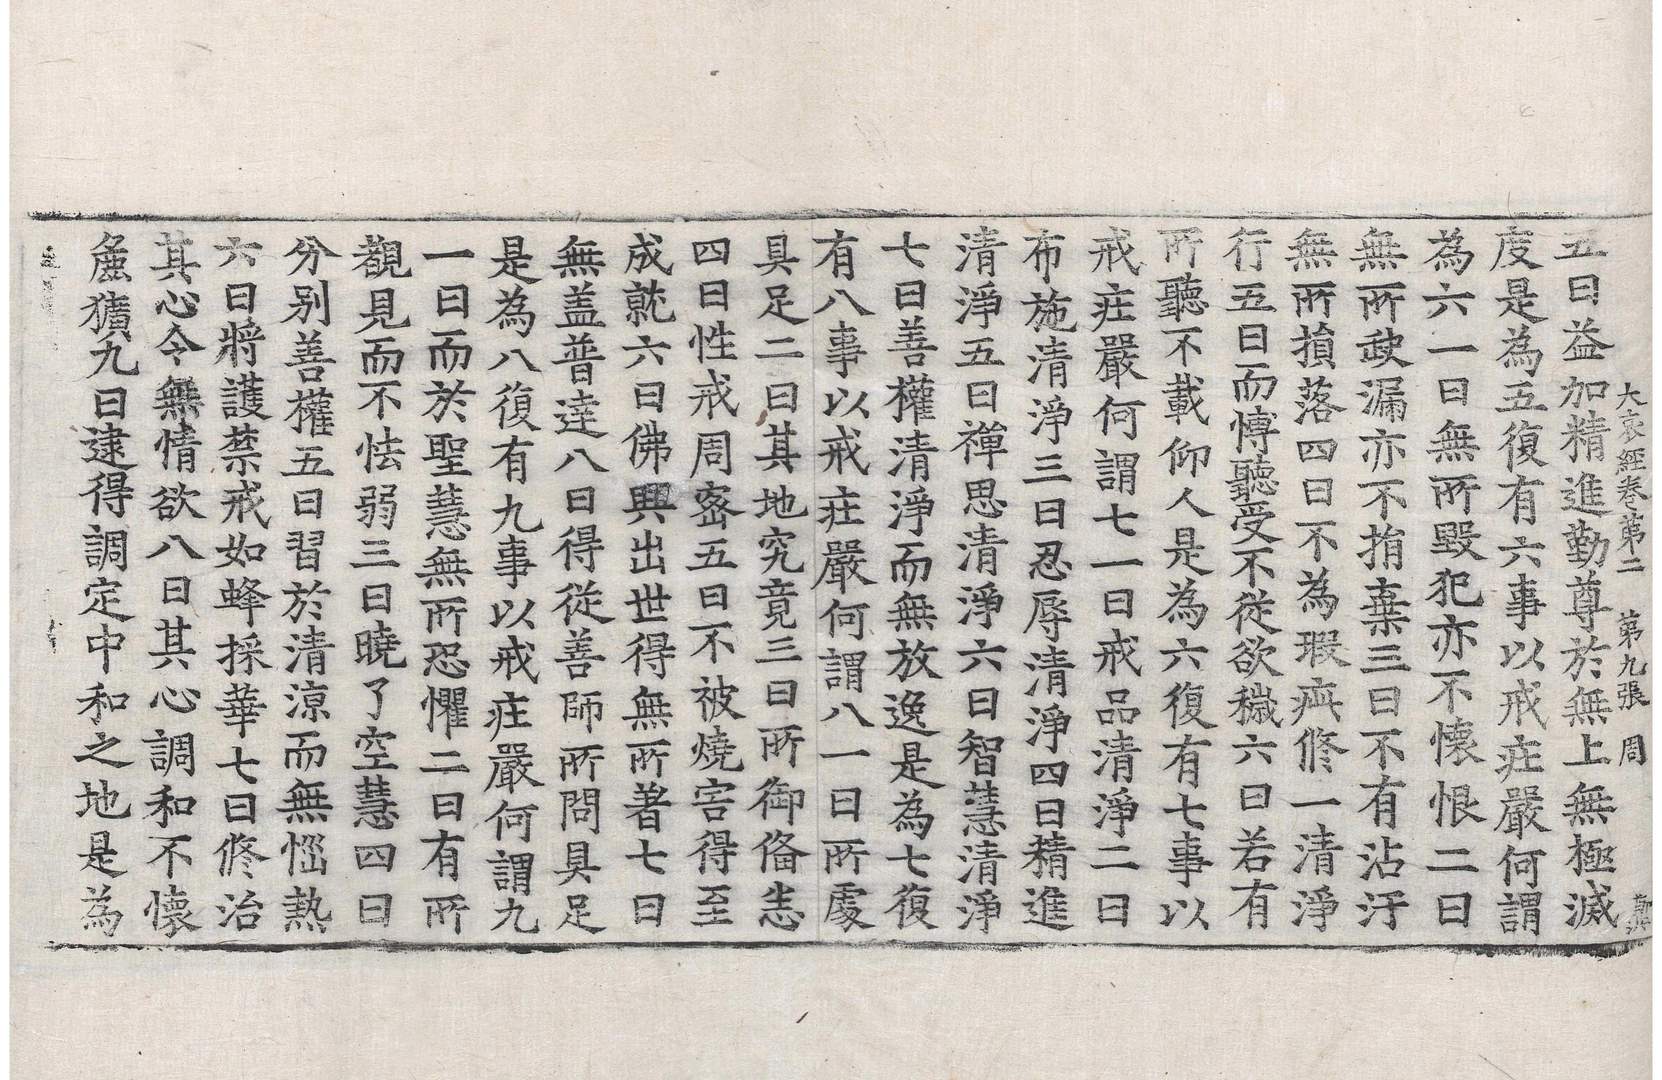 大哀經卷第二　第九張　周
五曰益加精進勤尊於無上無極滅
度是為五復有六事以戒莊嚴何謂
為六一曰無所毀犯亦不懷恨二曰
無所缺漏亦不捐棄三曰不有沾汙
無所損落四曰不為瑕疵修一清淨
行五曰而博聽受不從欲穢六曰若有
所聽不載仰人是為六復有七事以
戒莊嚴何謂七一曰戒品清淨二曰
布施清淨三曰忍辱清淨四曰精進
清淨五曰禪思清淨六曰智慧清淨
七曰善權清淨而無放逸是為七復
有八事以戒莊嚴何謂八一曰所處
具足二曰其地究竟三曰所御备志
四曰性戒周密五曰不被燒害得至
成就六曰佛興出世得無所著七曰
無盖普達八曰得從善師所問具足
是為八復有九事以戒莊嚴何謂九
一曰而於聖慧無所恐懼二曰有所
觀見而不怯弱三曰曉了空慧四曰
分別善權五曰習於清涼而無惱熱
六曰將護禁戒如蜂採華七曰修治
其心令無情欲八曰其心調和不懷
麁獷九曰逮得調定中和之地是為